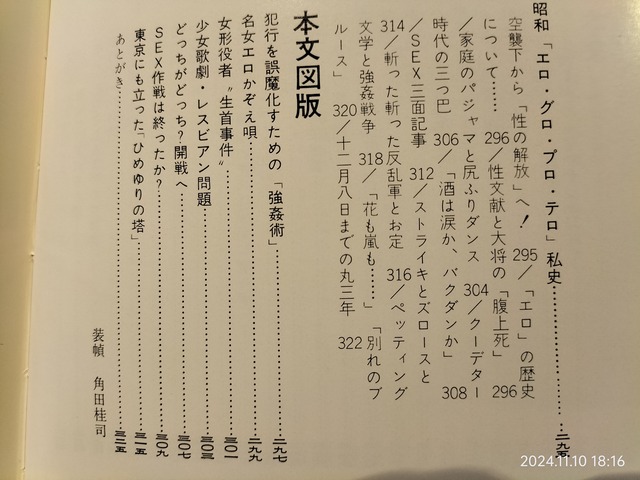 昭和「エロ・グロ・プロ・テロ」私史……二九五
空襲下から「性の解放」へ！ 295／「エロ」の歴史
について…… 296／性文献と大将の「腹上死」 296
／家庭のパジャマと尻ふりダンス 304／クーデター
時代の三つ巴 306／「酒は涙か、バクダンか」 308
／ＳＥＸ三面記事 312／ストライキとズロースと
314／斬った斬った反乱軍とお定 316／ペッティング
文学と強姦戦争 318／「花も嵐も……」「別れのブ
ルース」 320／十二月八日までの丸三年 322
本文図版
犯行を誤魔化すための「強姦術」……二九七
名女エロかぞえ唄……二九九
女形役者〝生首事件〟……三〇一
少女歌劇・レスビアン問題……三〇三
どっちがどっち？開戦へ……三〇七
ＳＥＸ作戦は終ったか？……三〇九
東京にも立った「ひめゆりの塔」……三一五
あとがき……三二五
装幀 角田桂司
2024.11.10 18:16